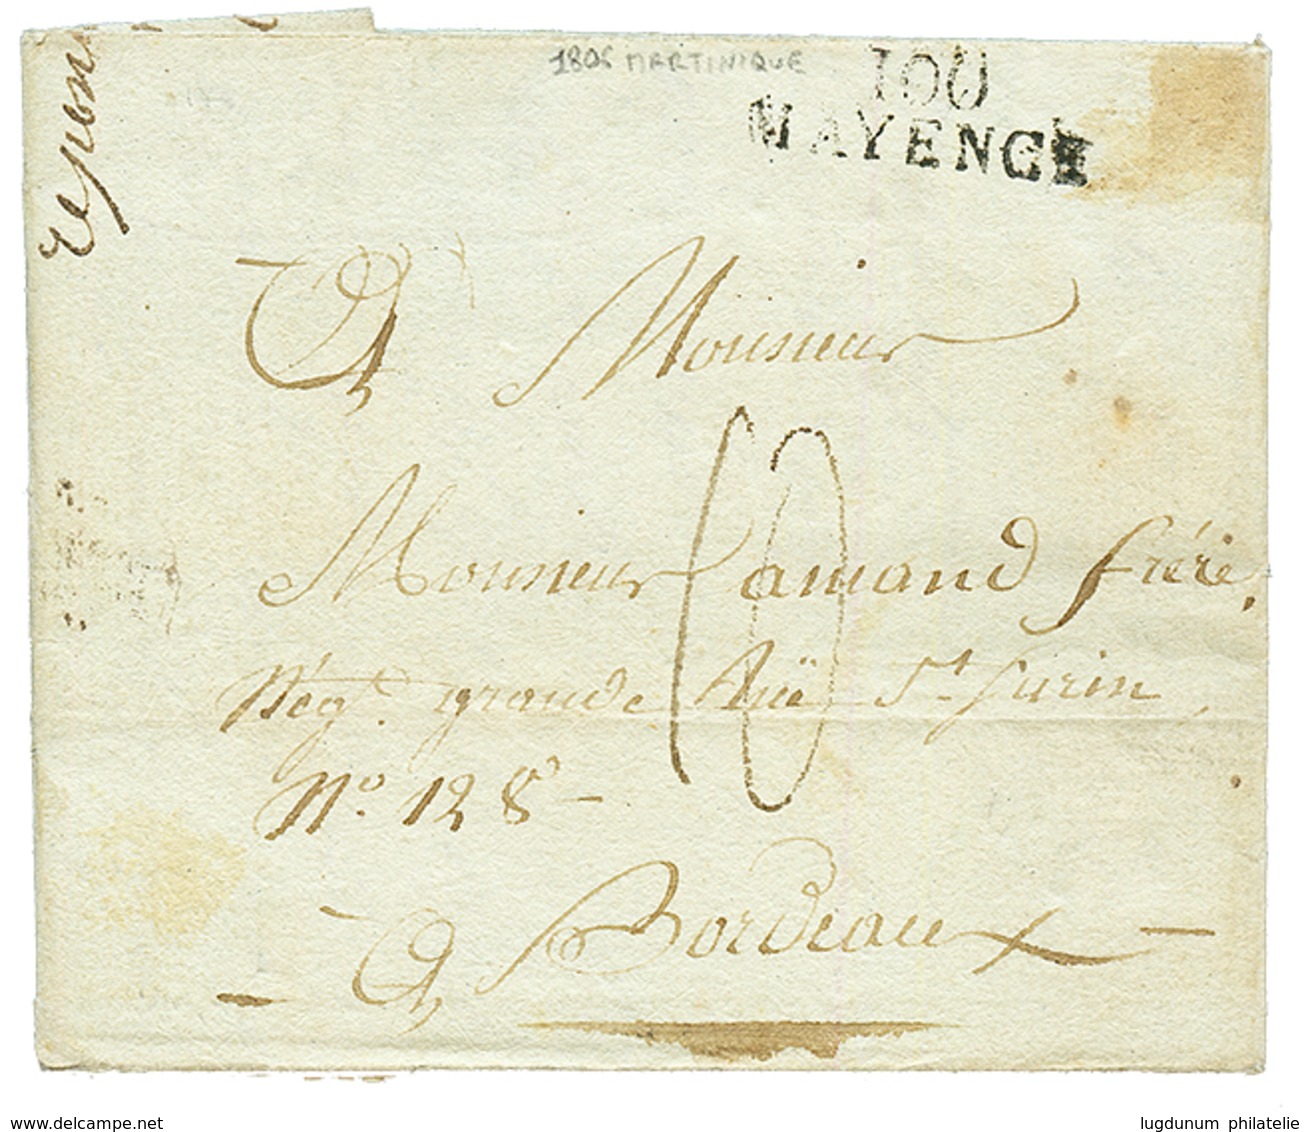 repon
1806 MARTINIQUE
100
MAYENCE
A Monsieur
10
Monsieur Lamand fréré,
Nég.t grande Ruë St. Surin
No. 128 -
- A Bordeaux -
www.delcampe.net
lugdunum philatelie